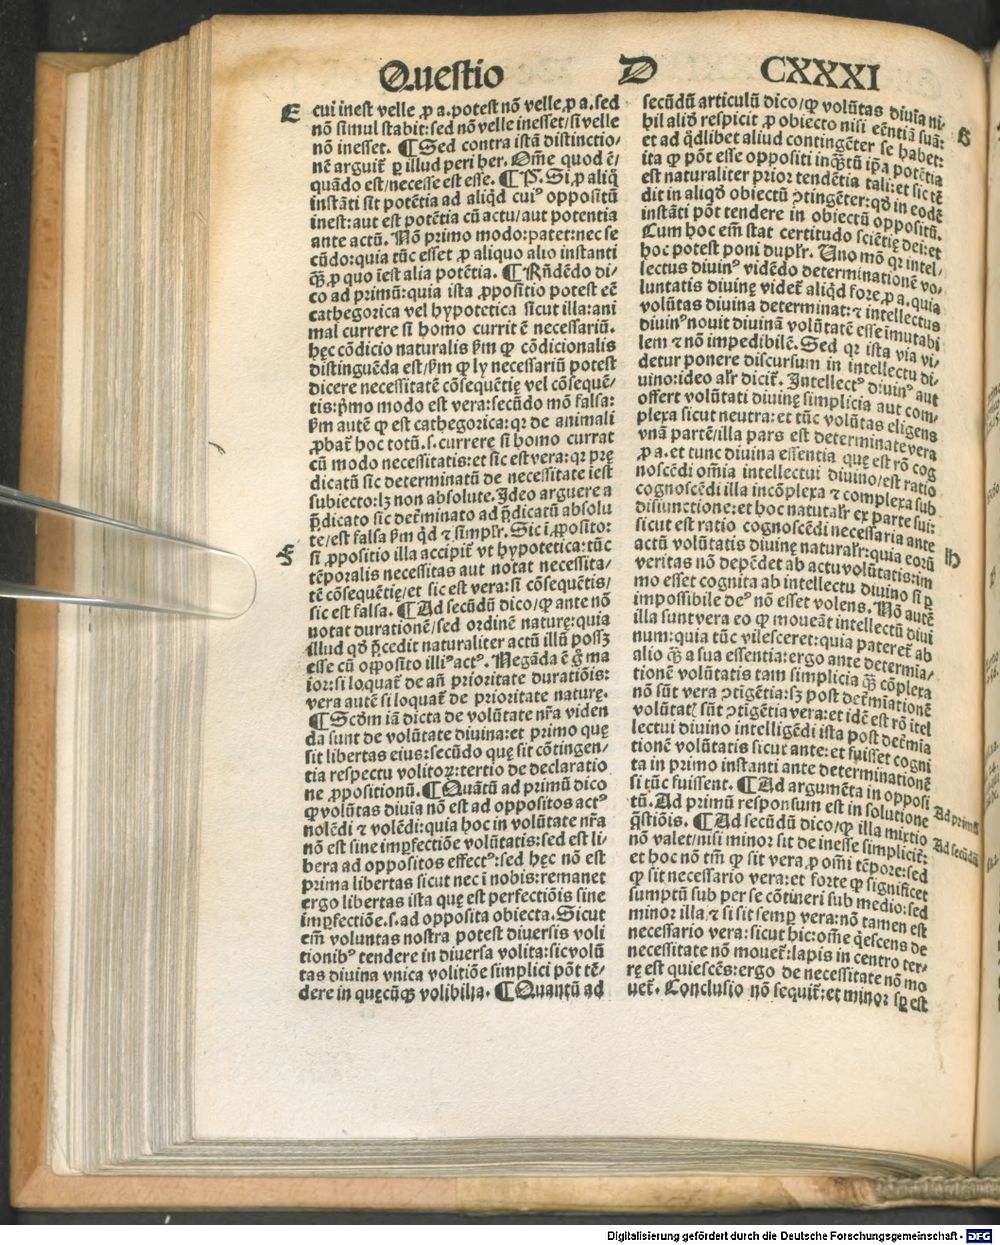 Questio D CXXXI
E
cui inest velle ꝓ a. potest nō velle ꝓ a. sed
nō simul stabit: sed nō velle inesset/si velle
nō inesset. ¶ Sed contra istā distinctio/
nē arguit᷑ ꝑ illud peri her. Om̄e quod ē/
quādo est/necesse est esse. ¶ P̄. Si ꝓ aliq̄
instāti sit potētia ad aliqd̄ cuiꝰ oppositū
inest: aut est potētia cū actu/aut potentia
ante actū. Nō primo modo: patet: nec se
cūdo: quia tūc esset ꝓ aliquo alio instanti
q̄ꝫ ꝓ quo īest alia potētia. ¶ Rn̄dēdo di/
co ad primū: quia ista ꝓpositio potest eē
cathegorica vel hypotetica sicut illa: ani
mal currere si homo currit ē necessariū.
hęc cōdicio naturalis ṗm ꝙ cōdicionalis
distinguēda est/ṗm ꝙ ly necessariū potest
dicere necessitatē cōsequētię vel cōsequē/
tis: p̄mo modo est vera: secūdo mō falsa:
ṗm autē ꝙ est cathegorica: qꝛ de animali
ꝓbat᷑ hoc totū. s. currere si homo currat
cū modo necessitatis: et sic est vera: qꝛ prę
dicatū sic determinatū de necessitate īest
subiecto: lꝫ non absolute. Ideo arguere a
p̄dicato sic det᷑minato ad p̄dicatū absolu
te/est falsa ṗm qd̄ ⁊ simplr̄. Sic ī ꝓposito:
F
si ꝓpositio illa accipit᷑ vt hypotetica: tūc
tēporalis necessitas aut notat necessita/
tē cōsequētię/et sic est vera: si cōsequētis/
sic est falsa. ¶ Ad secūdū dico/ꝙ ante nō
notat durationē/sed ordinē naturę: quia
illud qd̄ p̄cedit naturaliter actū illū possꝫ
esse cū opposito illiꝰ actꝰ. Negāda ē g̊ ma
ior: si loquat᷑ de an̄ prioritate duratiōis:
vera autē si loquat᷑ de prioritate naturę.
¶ Scd̄m iā dicta de volūtate nr̄a viden
da sunt de volūtate diuina: et primo quę
sit libertas eius: secūdo quę sit cōtingen/
tia respectu volitoꝝ: tertio de declaratio
ne ꝓpositionū. ¶ Quātū ad primū dico
ꝙ volūtas diuīa nō est ad oppositos actꝰ
nolēdi ⁊ volēdi: quia hoc in volūtate nr̄a
nō est sine imꝑfectiōe volūtatis: sed est li/
bera ad oppositos effectꝰ: sed hęc nō est
prima libertas sicut nec ī nobis: remanet
ergo libertas ista quę est perfectiōis sine
imꝑfectiōe. s. ad opposita obiecta. Sicut
em̄ voluntas nostra potest diuersis voli
tionibꝰ tendere in diuersa volita: sic volū
tas diuina vnica volitiōe simplici pōt tē/
dere in quęcūqꝫ volibilia. ¶ Quantū ad
secūdū articulū dico/ꝙ volūtas diuīa ni/
hil aliđ respicit ꝓ obiecto nisi eēntiā suā:
et ad qd̄libet aliud contingēter se habet:
G
ita ꝙ pōt esse oppositi inq̄tū ip̄a potētia
est naturaliter prior tendētia tali: et sic tē
dit in aliqđ obiectū ↄtingēter: qđ in eodē
instāti pōt tendere in obiectū oppositū.
Cum hoc em̄ stat certitudo sciētię dei: et
hoc potest poni duplr̄. Uno mō qꝛ intel/
lectus diuinꝰ vidēdo determinationē vo/
luntatis diuinę videt᷑ aliqd̄ fore ꝓ a. quia
volūtas diuina determinat: ⁊ intellectus
diuinꝰ nouit diuinā volūtatē esse īmutabi
lem ⁊ nō impedibilē. Sed qꝛ ista via vi/
detur ponere discursum in intellectu di/
uino: ideo alr̄ dicit᷑. Intellectꝰ diuinꝰ aut
offert volūtati diuinę simplicia aut com/
plexa sicut neutra: et tūc volūtas eligens
vnā partē/illa pars est determinate vera
ꝓ a. et tunc diuina essentia quę est rō cog
noscēdi om̄ia intellectui diuino/est ratio
cognoscēdi illa incōplexa ⁊ complexa sub
disiunctione: et hoc naturalr̄ ex parte sui:
sicut est ratio cognoscēdi necessaria ante
actū volūtatis diuinę naturalr̄: quia eorū
H
veritas nō depēdet ab actu volūtatis: im
mo esset cognita ab intellectu diuino si ꝑ
impossibile deꝰ nō esset volens. Nō autē
illa sunt vera eo ꝙ moueāt intellectū diui
num: quia tūc vilesceret: quia pateret᷑ ab
alio q̄ꝫ a sua essentia: ergo ante determīa/
tionē volūtatis tam simplicia q̄ꝫ cōplexa
nō sūt vera ↄtigētia: sꝫ post det᷑mīationē
volūtatꝭ sūt ↄtigētia vera: et idē est rō ītel
lectui diuino intelligēdi ista post det᷑mīa
tionē volūtatis sicut ante: et fuisset cogni
ta in primo instanti ante determinationē
si tūc fuissent. ¶ Ad argumēta in opposi
tū. Ad primū responsum est in solutione
Ad primū
q̄stiōis. ¶ Ad secūdū dico/ꝙ illa mixtio
Ad secūdū
nō valet/nisi minor sit de inesse simplicit᷑:
et hoc nō tm̄ ꝙ sit vera ꝓ om̄i tēpore: sed
ꝙ sit necessario vera: et forte ꝙ significet
sumptū sub per se cōtineri sub medio: sed
minor illa/⁊ si sit semꝑ vera: nō tamen est
necessario vera: sicut hic: om̄e q̇escens de
necessitate nō mouet᷑: lapis in centro ter/
rę est quiescēs: ergo de necessitate nō mo
uet᷑. Conclusio nō sequit᷑: et minor sꝑ est
Digitalisierung gefördert durch die Deutsche Forschungsgemeinschaft - DFG